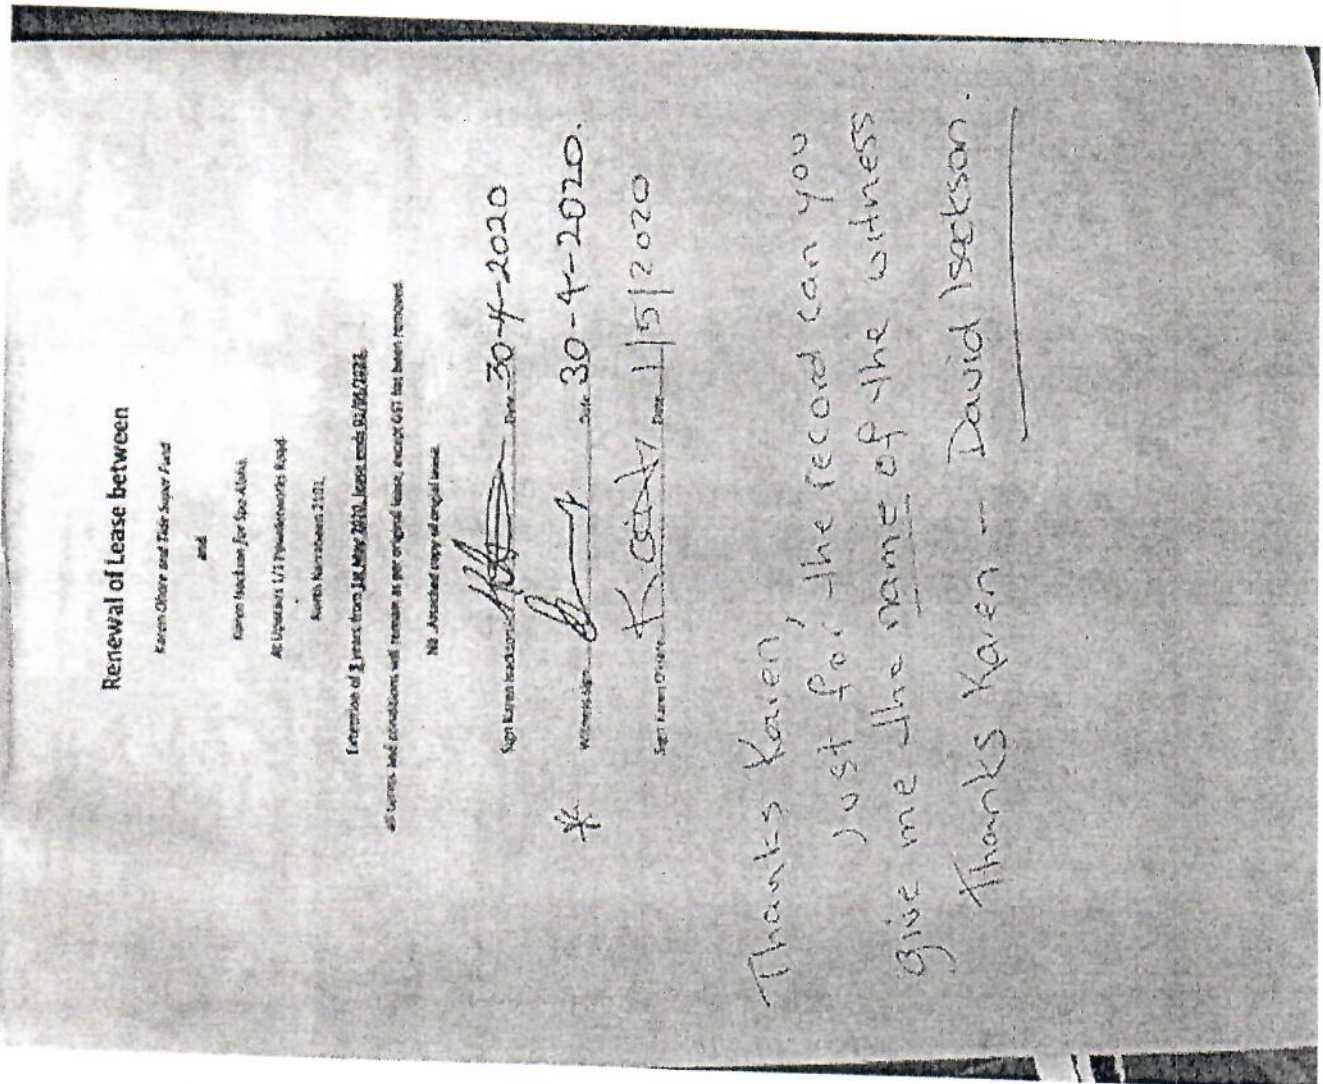 Renewal of Lease between
Karen and Super Fund
and
Karen Isackson for Spa-Aloha.
At Upstairs 1/1 Powderworks Road.
North Narrabeen 2101.
Extention of years from 1st May 2020, lease ends
all terms and conditions will remain as per original lease, except GST has been removed.
NB. Attached copy of lease.
Sign Karen Isackson Date 30-4-2020
* Witness sign Date 30-4-2020.
Sign Karen Date 1/5/2020
Thanks Karen,
Just for the record can you
give me the name of the witness
Thanks Karen - David Isackson.